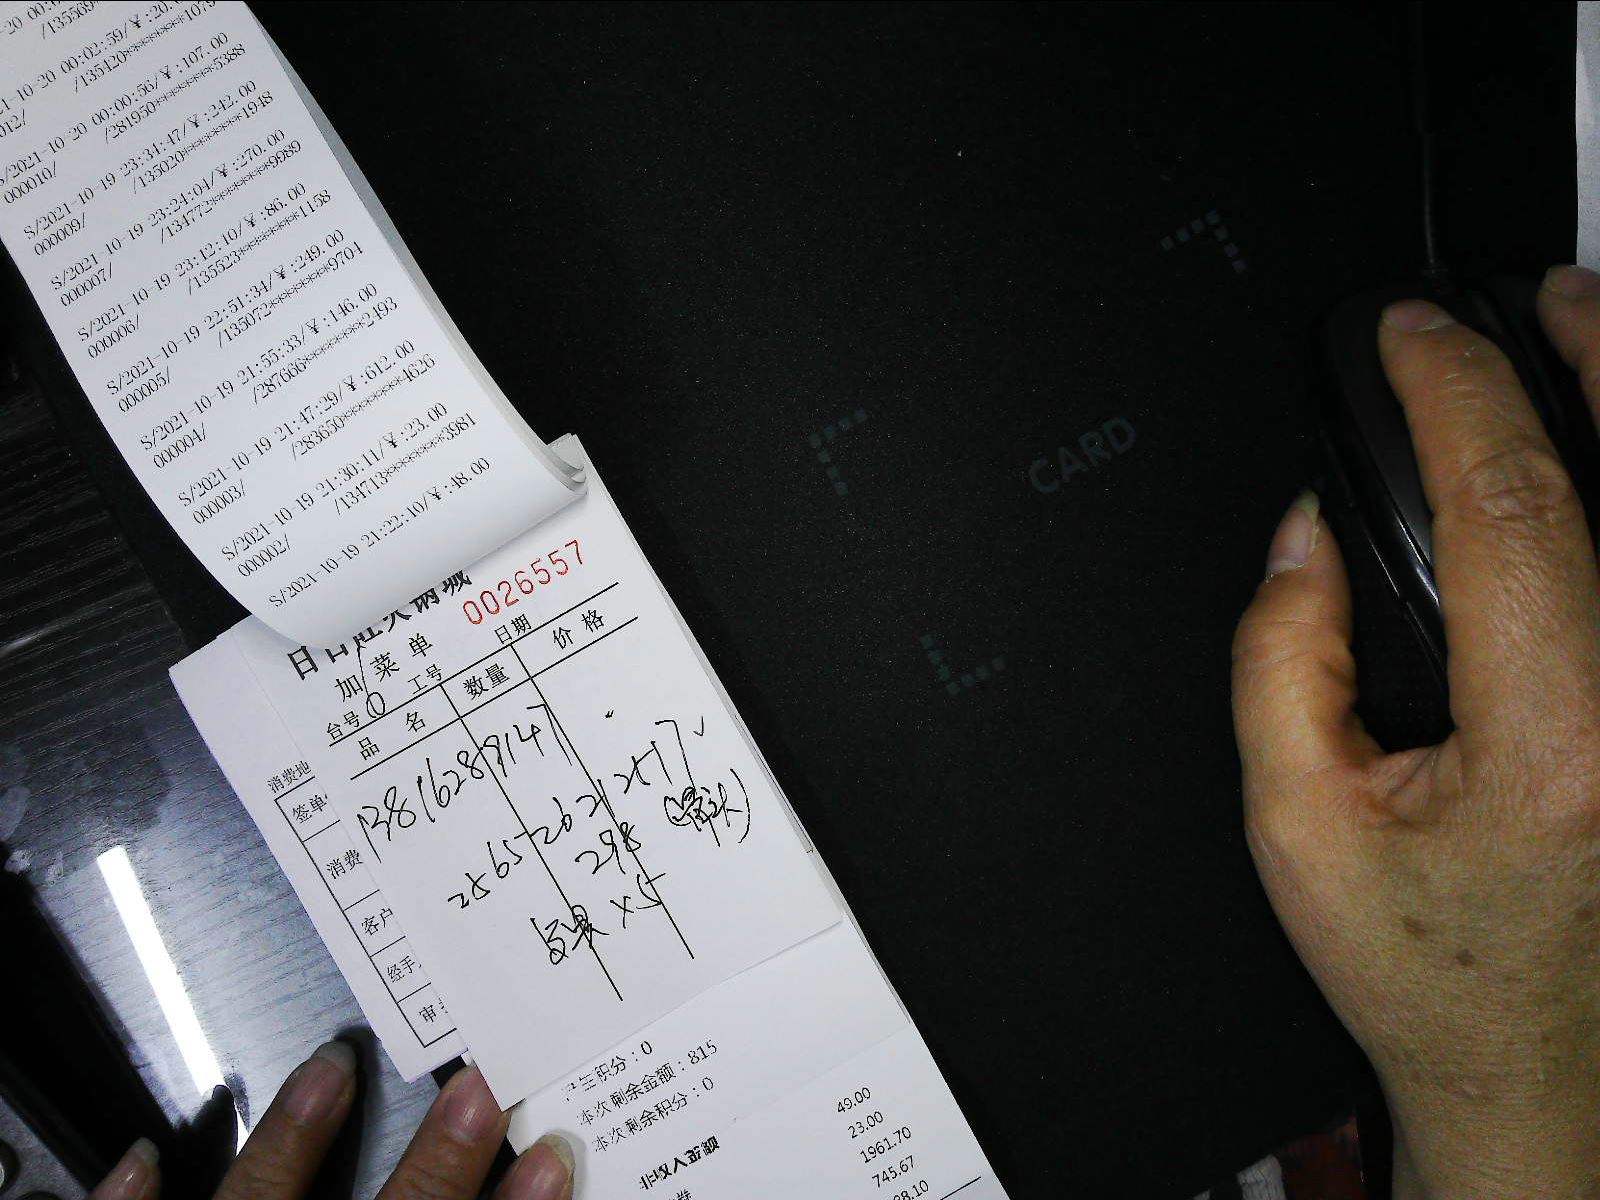 /135569
21-10-20 00:02:59/¥:20.
012/ /135420******1079
S/2021-10-20 00:00:56/¥:107.00
000010/ /281950*******5388
S/2021-10-19 23:34:47/¥:242.00
000009/ /135020*******1948
S/2021-10-19 23:24:04/¥:270.00
000007/ /134772*******9989
S/2021-10-19 23:12:10/¥:86.00
000006/ /135523*******1158
S/2021-10-19 22:51:34/¥:249.00
000005/ /135072*******9701
S/2021-10-19 21:55:33/¥:146.00
000004/ /287666*******2493
S/2021-10-19 21:47:29/¥:612.00
000003/ /283650*******4626
S/2021-10-19 21:30:11/¥:23.00
000002/ /134713*******3981
S/2021-10-19 21:22:10/¥:48.00
0026557
加菜单
台号 工号 日期
品名 数量 价格
13816289147
298
×5
消费地
签单
消费
客户
经手
审
生积分:0
本次剩余金额:815
本次剩余积分:0
非收入金额
49.00
23.00
1961.70
745.67
CARD